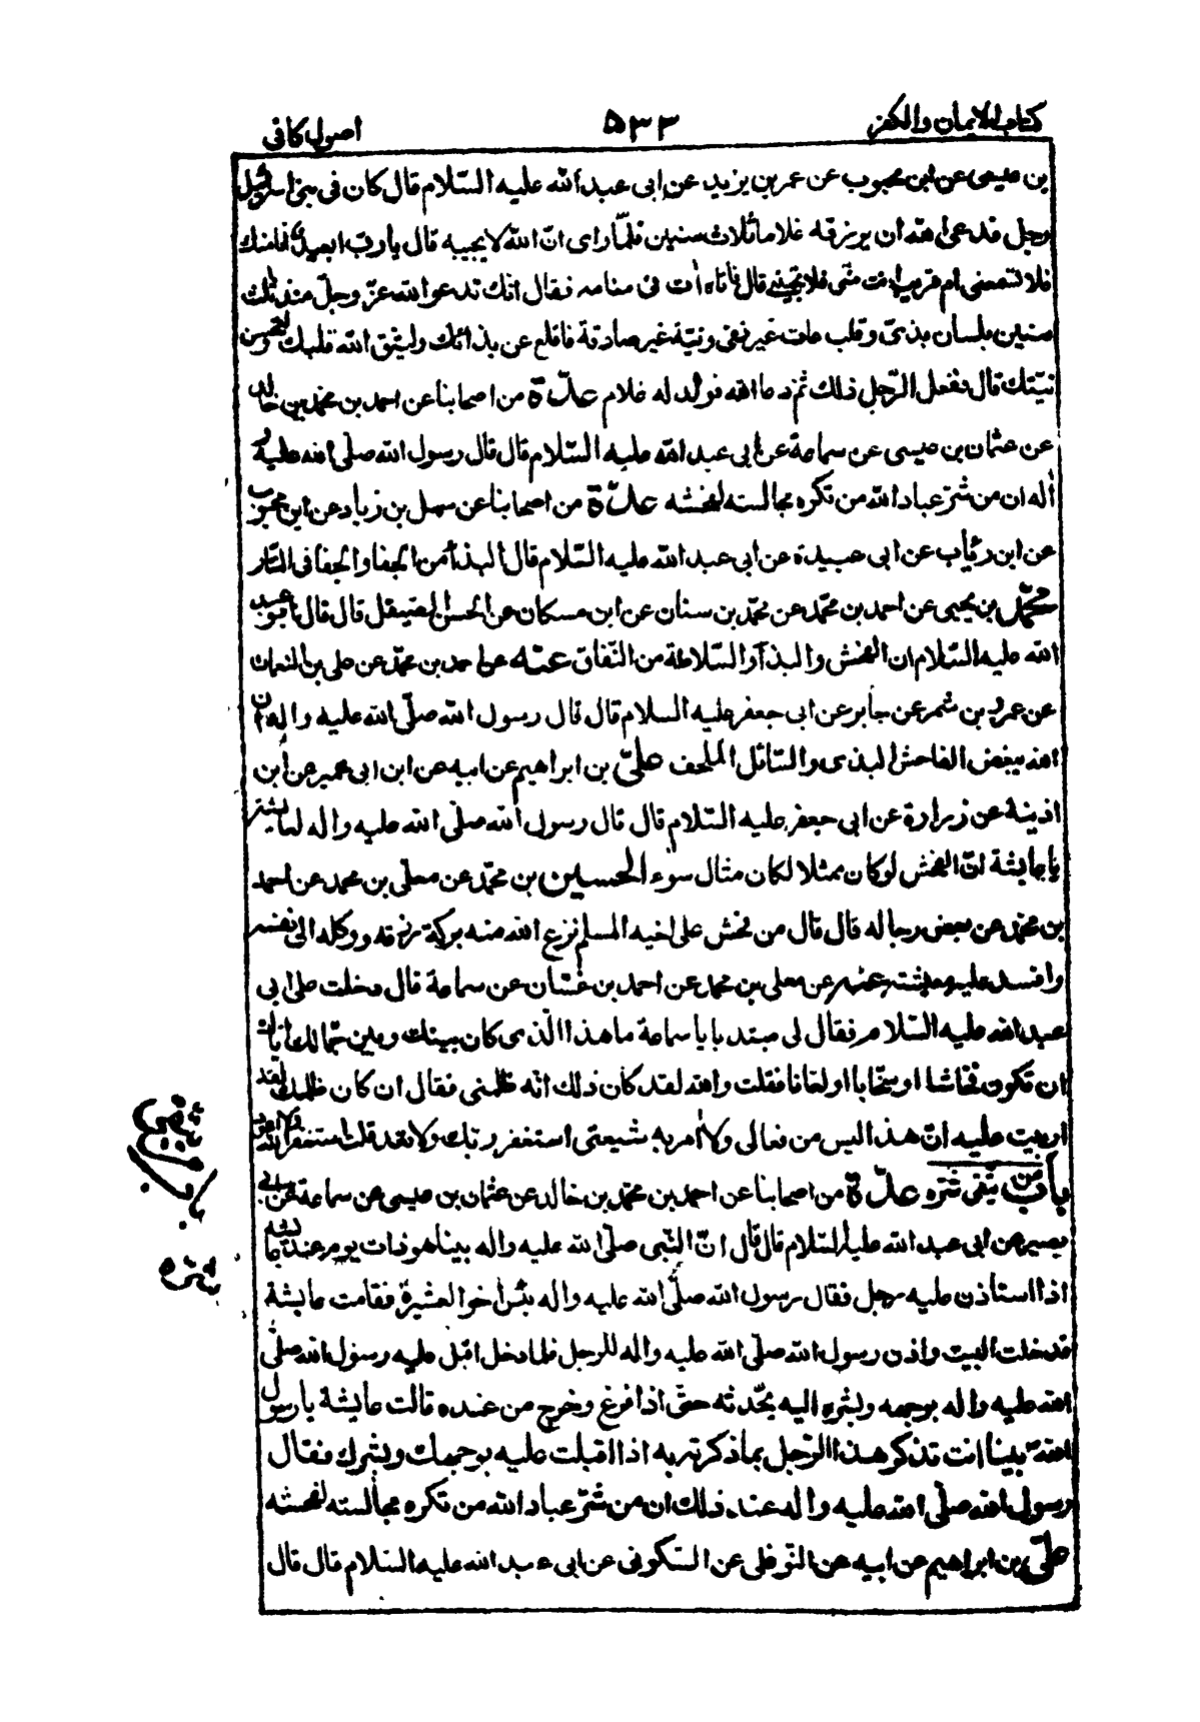 كتاب الايمان والكفر
۵۳۳
اصول كافى
بن عيسى عن ابن محبوب عن عمر بن يزيد عن ابى عبد الله عليه السّلام قال كان فى بنى اسرائيل
رجل قد عى الله ان يرزقه غلاما ثلاث سنين فلمّا راى انّ الله لا يجيبه قال يا ربّ ابعيد انا منك
فلا تسمعنى ام قريب انت منّى فلا تجيبنى قال فاتاه ات فى منامه فقال انّك تدعو الله عزّ وجلّ منذ ثلث
سنين بلسان بذىّ وقلب عات غير نقى ونيّة غير صادقة فاقلع عن بذائك وليتق الله قلبك ولتحسن
نيّتك قال ففعل الرّجل ذلك ثم دعا الله فولد له غلام عدّة من اصحابنا عن احمد بن محمّد بن خالد
عن عثمان بن عيسى عن سماعة عن ابى عبد الله عليه السّلام قال قال رسول الله صلّى الله عليه و
اله ان من شرّ عباد الله من تكره مجالسته لفحشه عدّة من اصحابنا عن سهل بن زياد عن ابن محبوب
عن ابن رئاب عن ابى عبيدة عن ابى عبد الله عليه السّلام قال البذاء من الجفا والجفا فى النّار
محمّد بن يحيى عن احمد بن محمّد عن محمّد بن سنان عن ابن مسكان عن الحسن الصيقل قال قال ابو عبد
الله عليه السّلام ان الفحش والبذآ والسّلاطة من النّفاق عنه عن احمد بن محمّد عن على بن النعمان
عن عمرو بن شمر عن جابر عن ابى جعفر عليه السلام قال قال رسول الله صلّى الله عليه واله ان
الله يبغض الفاحش البذى والسّائل الملحف علىّ بن ابراهيم عن ابيه عن ابن ابى عمير عن ابن
اذينة عن زرارة عن ابى جعفر عليه السّلام قال قال رسول الله صلّى الله عليه واله لعايشة
يا عايشة انّ الفحش لو كان ممثلا لكان مثال سوء الحسين بن محمّد عن معلّى بن محمد عن احمد
بن محمّد عن بعض رجاله قال قال من فحش على اخيه المسلم نزع الله منه بركة رزقه ووكله الى نفسه
وافسد عليه معيشته عنه عن معلى بن محمد عن احمد بن غسّان عن سماعة قال دخلت على ابى
عبد الله عليه السّلام فقال لى مبتد يا يا سماعة ما هذا الّذى كان بينك وبين جمّالك ايّاك
ان تكون فحّاشا او سخّابا او لعّانا فقلت والله لقد كان ذلك انّه ظلمنى فقال ان كان ظلمك لقد
اربيت عليه انّ هذا ليس من فعالى ولا امر به شيعتى استغفر ربّك ولا تعد قلت استغفر الله ولا اعود
باب من يتّقى شرّه عدّة من اصحابنا عن احمد بن محمّد بن خالد عن عثمان بن عيسى عن سماعة عن ابى
بصير عن ابى عبد الله عليه السّلام قال قال انّ النّبى صلّى الله عليه واله بينا هو ذات يوم عند عايشة
اذا استاذن عليه رجل فقال رسول الله صلّى الله عليه واله بئس اخو العشيرة فقامت عايشة
فدخلت البيت واذن رسول الله صلّى الله عليه واله للرجل فلما دخل اقبل عليه رسول الله صلّى
الله عليه واله بوجهه وبشره اليه يحّدثه حتّى اذا فرغ وخرج من عنده قالت عايشة يا رسول
الله بينا انت تذكر هذا الرّجل بما ذكرته به اذا اقبلت عليه بوجهك وبشرك فقال
رسول الله صلّى الله عليه واله عند ذلك ان من شرّ عباد الله من تكره مجالسته لفحشه
علىّ بن ابراهيم عن ابيه عن النّوفلى عن السّكونى عن ابى عبد الله عليه السّلام قال قال
باب من يتقى
شره